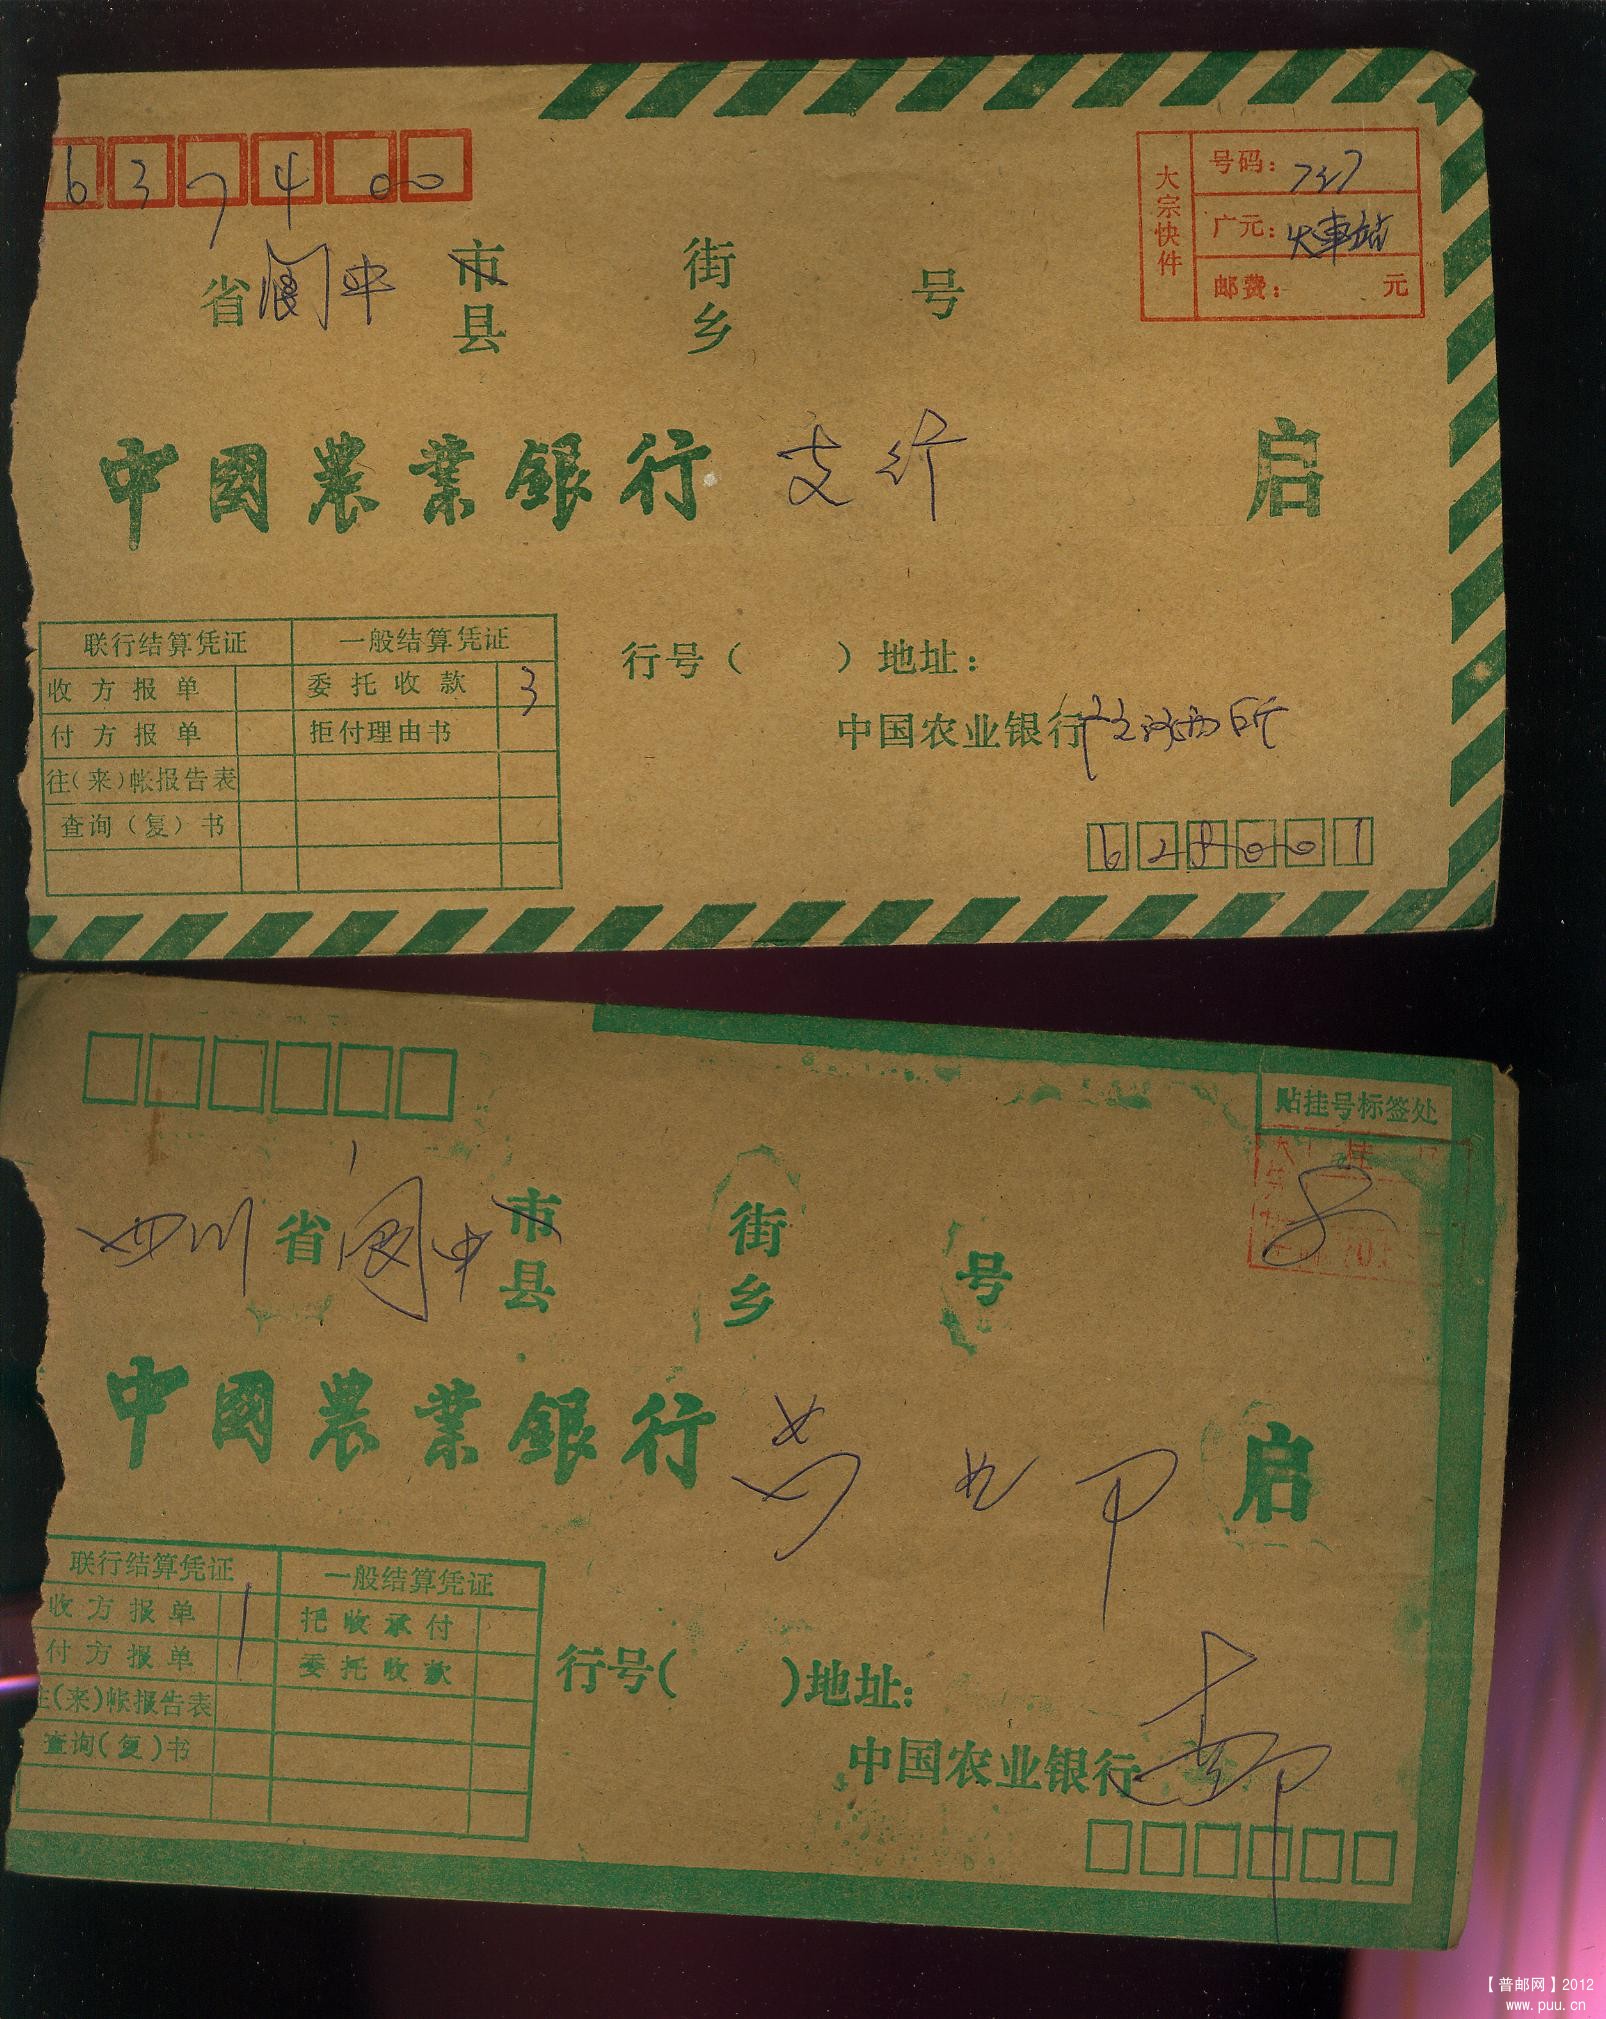 637400
大宗快件
号码：727
广元：火車站
邮费： 元
省 阆中 市 县 街 乡 号
中國農業銀行 支行 启
联行结算凭证 一般结算凭证
收方报单 委托收款 3
付方报单 拒付理由书
往(来)帐报告表
查询(复)书
行号( )地址：
中国农业银行
628001
贴挂号标签处
四川省 阆中 市 县 街 乡 号
中國農業銀行 启
联行结算凭证 一般结算凭证
收方报单 1 托收承付
付方报单 委托收款
往(来)帐报告表
查询(复)书
行号( )地址：
中国农业银行
【普邮网】2012
www.puu.cn